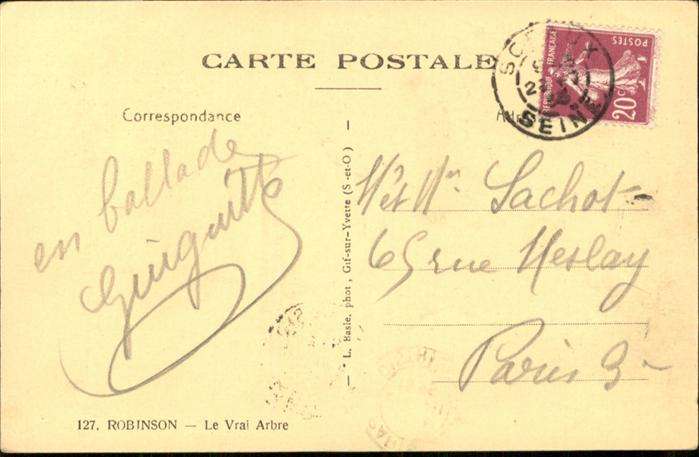 CARTE POSTALE
Correspondance
en ballade
Guiguitte
127. ROBINSON — Le Vrai Arbre
L. Basle, phot, Gif-sur-Yvette (S-et-O)
POSTES
FRANÇAISE
20c
SCEAUX
SEINE
Mr et Mme Sachot
65 rue Meslay
Paris 3e